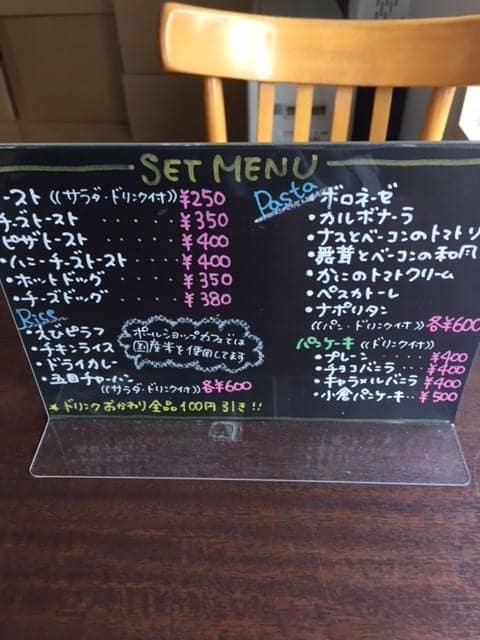 SET MENU
ースト ((サラダ・ドリンク付)) ¥250
チーズトースト ････ ¥350
ピザトースト ････ ¥400
・ハニーチーズトースト ･･ ¥400
・ホットドッグ ････ ¥350
・チーズドッグ ････ ¥380
Rice
・えびピラフ
・チキンライス
・ドライカレー
・五目チャーハン
((サラダ・ドリンク付)) 各¥600
国産米を使用してます
* ドリンクおかわり全品100円引き!!
Pasta
・ボロネーゼ
・カルボナーラ
・ナスとベーコンのトマトソ
・舞茸とベーコンの和風
・かにのトマトクリーム
・ペスカトーレ
・ナポリタン
((パン・ドリンク付)) 各¥600
パンケーキ ((ドリンク付))
・プレーン ････ ¥400
・チョコバニラ ･･･ ¥400
・キャラメルバニラ ･･ ¥400
・小倉パンケーキ ･･ ¥500